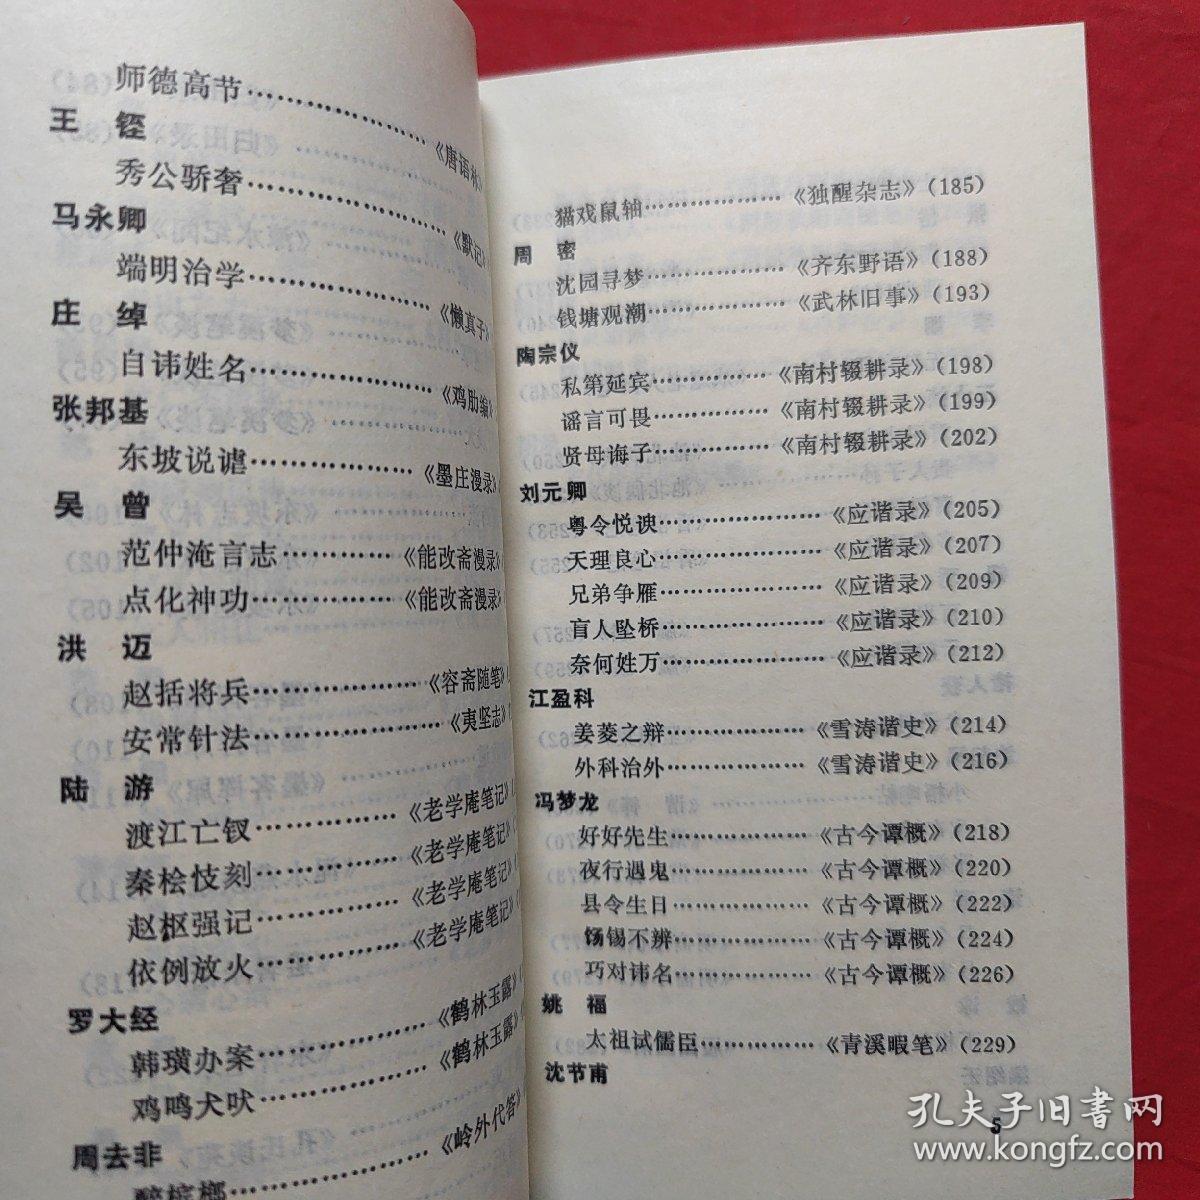 师德高节……………………《唐语林》
王　铚
秀公骄奢……………………《默记》
马永卿
端明治学……………………《懒真子》
庄　绰
自讳姓名……………………《鸡肋编》
张邦基
东坡说谑…………………《墨庄漫录》
吴　曾
范仲淹言志…………《能改斋漫录》
点化神功……………《能改斋漫录》
洪　迈
赵括将兵…………………《容斋随笔》
安常针法……………………《夷坚志》
陆　游
渡江亡钗………………《老学庵笔记》
秦桧忮刻………………《老学庵笔记》
赵枢强记………………《老学庵笔记》
依例放火………………《老学庵笔记》
罗大经
韩璜办案…………………《鹤林玉露》
鸡鸣犬吠…………………《鹤林玉露》
周去非
醉槟榔…………………《岭外代答》
猫戏鼠轴………………《独醒杂志》(185)
周　密
沈园寻梦………………《齐东野语》(188)
钱塘观潮………………《武林旧事》(193)
陶宗仪
私第延宾……………《南村辍耕录》(198)
谣言可畏……………《南村辍耕录》(199)
贤母诲子……………《南村辍耕录》(202)
刘元卿
粤令悦谀…………………《应谐录》(205)
天理良心…………………《应谐录》(207)
兄弟争雁…………………《应谐录》(209)
盲人坠桥…………………《应谐录》(210)
奈何姓万…………………《应谐录》(212)
江盈科
姜菱之辩………………《雪涛谐史》(214)
外科治外………………《雪涛谐史》(216)
冯梦龙
好好先生………………《古今谭概》(218)
夜行遇鬼………………《古今谭概》(220)
县令生日………………《古今谭概》(222)
饧锡不辨………………《古今谭概》(224)
巧对讳名………………《古今谭概》(226)
姚　福
太祖试儒臣……………《青溪暇笔》(229)
沈节甫
5
孔夫子旧书网
www.kongfz.com